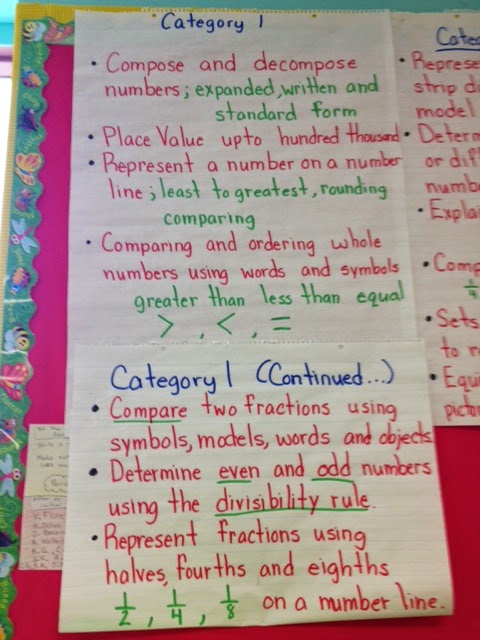 Category 1
• Compose and decompose
numbers; expanded, written and
standard form
• Place Value upto hundred thousand
• Represent a number on a number
line; least to greatest, rounding
comparing
• Comparing and ordering whole
numbers using words and symbols
greater than less than equal
> , < , =
Category 1 (Continued...)
• Compare two fractions using
symbols, models, words and objects.
• Determine even and odd numbers
using the divisibility rule.
• Represent fractions using
halves, fourths and eighths
1/2 , 1/4 , 1/8 on a number line.
• 
strip
model
• 
or
• 
• 
1/4
• Sets
to
•